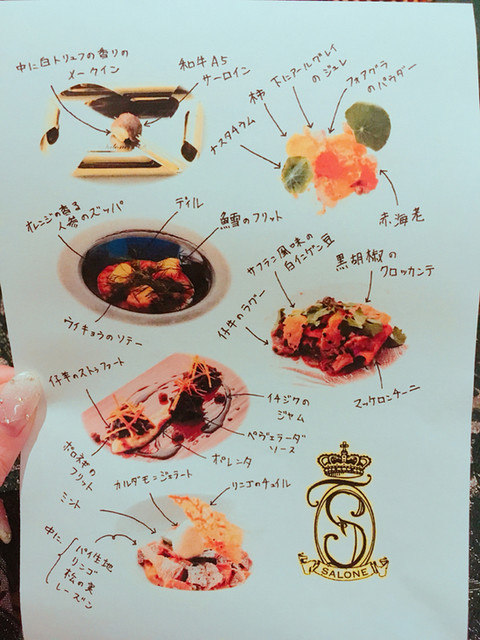 中に白トリュフの香りの
メークイン
和牛A5
サーロイン
ナスタチウム
柿
下にアールグレイ
のジュレ
フォアグラ
のパウダー
赤海老
オレンジの香る
人参のズッパ
ディル
鱈のフリット
ウイキョウのソテー
サフラン風味の
白インゲン豆
黒胡椒の
クロッカンテ
仔牛のラグー
マッケロンチーニ
仔羊のストゥファート
イチジクの
ジャム
ペヴェラーダ
ソース
ポレンタ
ポロネギの
フリット
カルダモンジェラート
リンゴのチュイル
ミント
中に
パイ生地
リンゴ
松の実
レーズン
S
SALONE